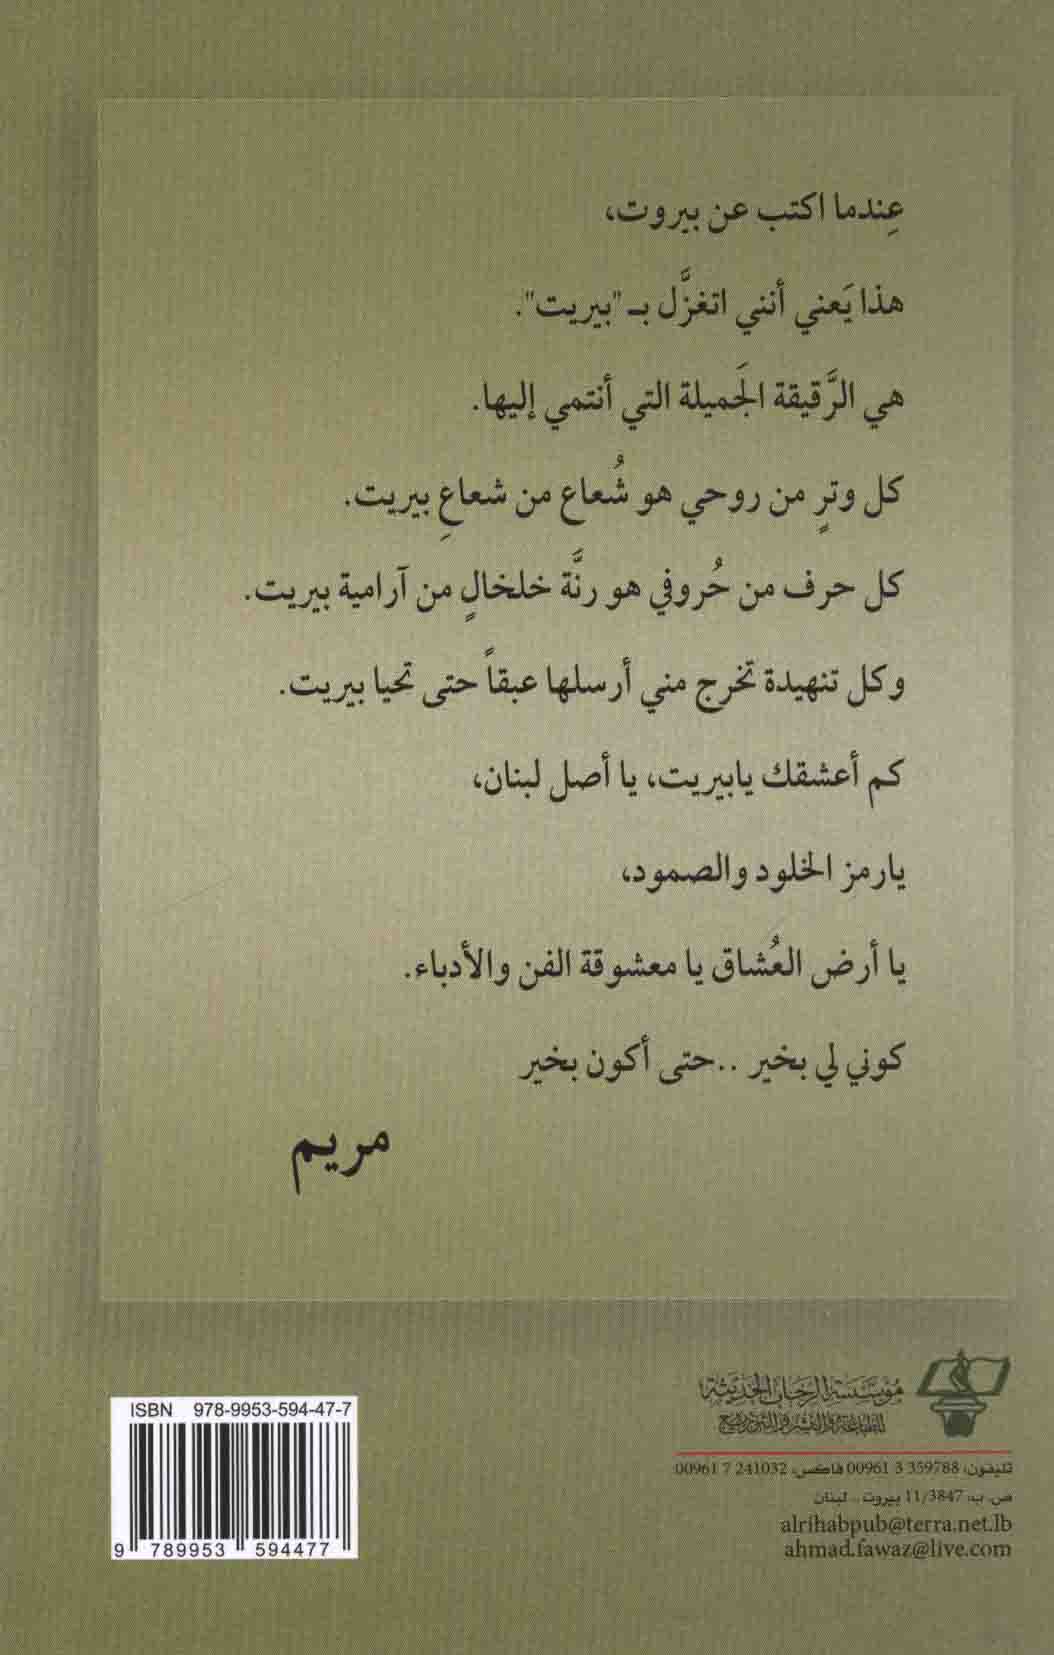 عِندما اكتب عن بيروت،
هذا يَعني أنني اتغزَّل بـ "بيريت".
هي الرَّقيقة الجَميلة التي أنتمي إليها.
كل وترٍ من روحي هو شُعاع من شعاعِ بيريت.
كل حرف من حُروفي هو رنَّة خلخالٍ من آرامية بيريت.
وكل تنهيدة تخرج مني أرسلها عبقاً حتى تحيا بيريت.
كم أعشقك يابيريت، يا أصل لبنان،
يارمز الخلود والصمود،
يا أرض العُشاق يا معشوقة الفن والأدباء.
كوني لي بخير ..حتى أكون بخير
مريم
مؤسسة الرحاب الحديثة
للطباعة والنشر والتوزيع
تليفون: 00961 3 359788 فاكس: 00961 7 241032
ص. ب: 11/3847 بيروت - لبنان
alrihabpub@terra.net.lb
ahmad.fawaz@live.com
ISBN 978-9953-594-47-7
9 789953 594477